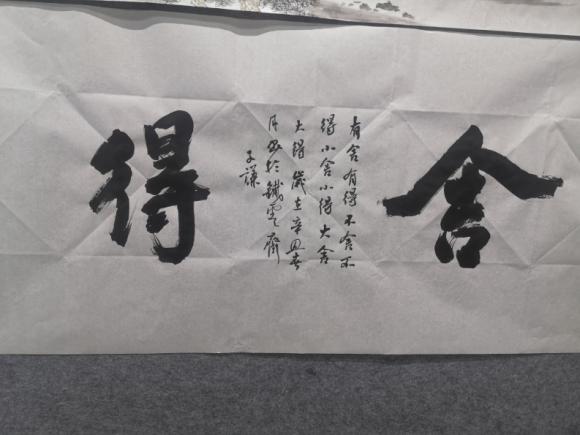 舍
有舍有得不舍不
得小舍小得大舍
大得歲在辛丑春
月書於鐵雲齋
子謙
得